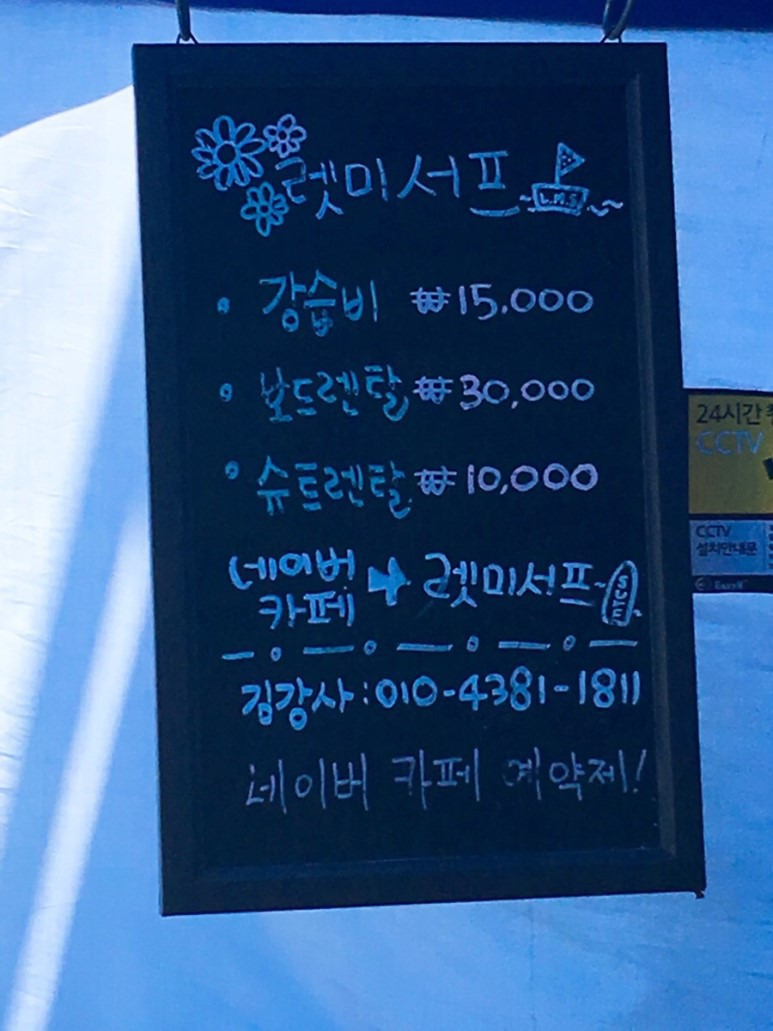 렛미서프 L.M.S
강습비 ₩15,000
보드렌탈 ₩30,000
슈트렌탈 ₩10,000
네이버
카페 → 렛미서프
김강사:010-4381-1811
네이버 카페 예약제!
24시간
CCTV
CCTV
설치안내문